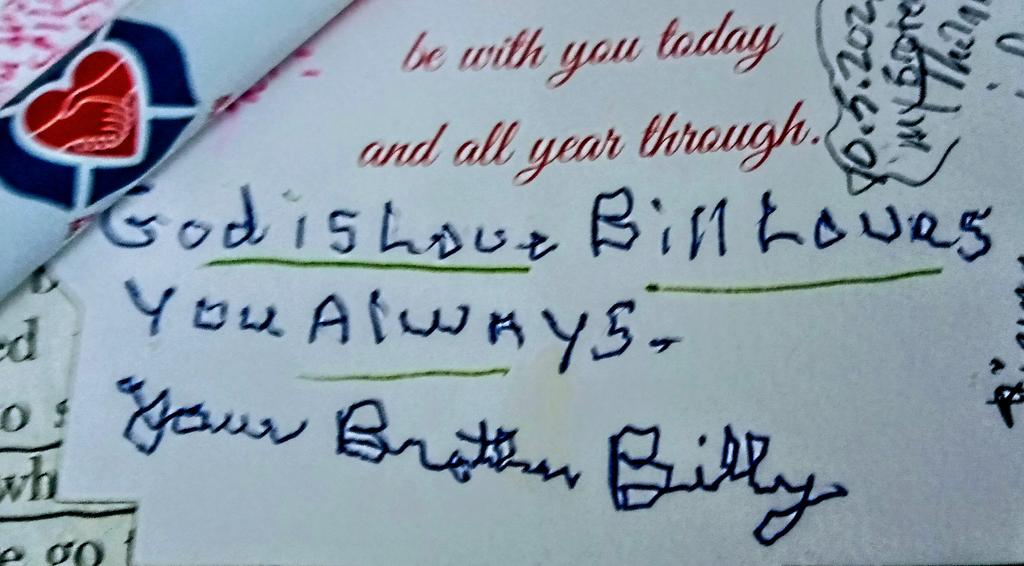 be with you today
and all year through.
God is Love Bill Loves
You Always.
"Your Brother Billy
ed
o s
wh
e go t
my